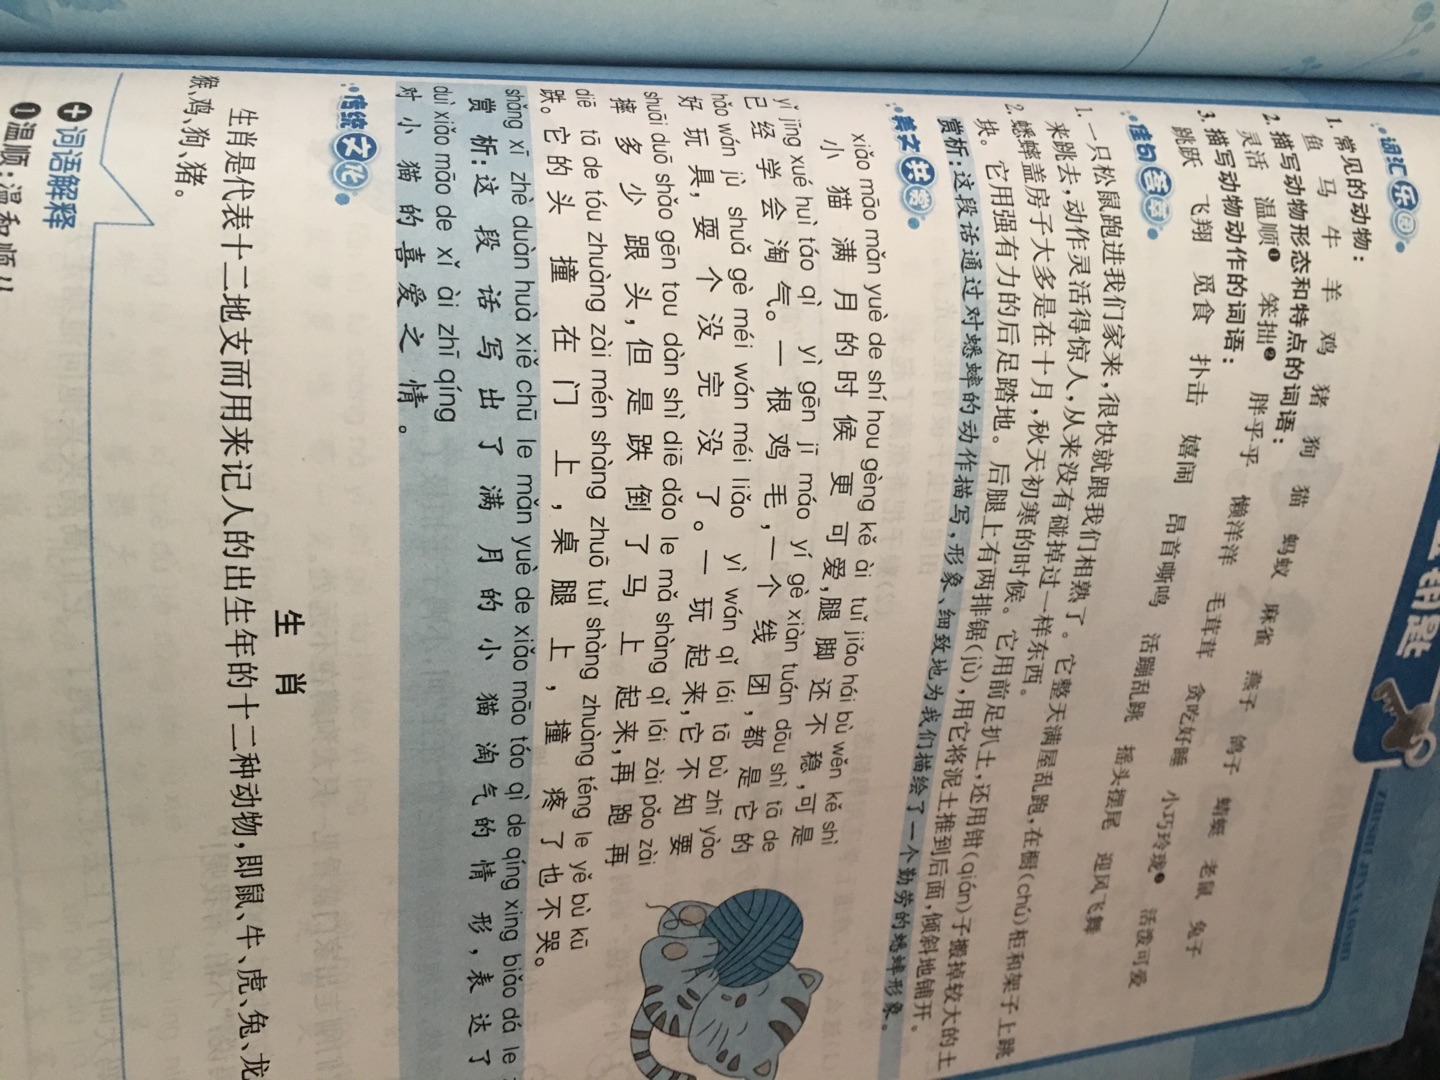 词汇乐园
1. 常见的动物：
鱼 马 牛 羊 鸡 猪 狗 猫 蚂蚁 麻雀 燕子 鸽子 蜻蜓 老鼠 兔子
2. 描写动物形态和特点的词语：
灵活 温顺❶ 笨拙❷ 胖乎乎 懒洋洋 毛茸茸 贪吃好睡 小巧玲珑❸ 活泼可爱
3. 描写动物动作的词语：
跳跃 飞翔 觅食 扑击 嬉闹 昂首嘶鸣 活蹦乱跳 摇头摆尾 迎风飞舞
佳句荟萃
1. 一只松鼠跑进我们家来，很快就跟我们相熟了。它整天满屋乱跑，在橱(chú)柜和架子上跳
来跳去，动作灵活得惊人，从来没有碰掉过一样东西。
2. 蟋蟀盖房子大多是在十月，秋天初寒的时候。它用前足扒土，还用钳(qián)子搬掉较大的土
块。它用强有力的后足踏地。后腿上有两排锯(jù)，用它将泥土推到后面，倾斜地铺开。
赏析：这段话通过对蟋蟀的动作描写，形象、细致地为我们描绘了一个勤劳的蟋蟀形象。
美文共赏
xiǎo māo mǎn yuè de shí hou gèng kě ài tuǐ jiǎo hái bù wěn kě shì
小猫满月的时候更可爱，腿脚还不稳，可是
yǐ jīng xué huì táo qì yì gēn jī máo yí gè xiàn tuán dōu shì tā de
已经学会淘气。一根鸡毛，一个线团，都是它的
hǎo wán jù shuǎ gè méi wán méi liǎo yì wán qǐ lái tā bù zhī yào
好玩具，耍个没完没了。一玩起来，它不知要
shuāi duō shǎo gēn tou dàn shì diē dǎo le mǎ shàng qǐ lái zài pǎo zài
摔多少跟头，但是跌倒了马上起来，再跑再
diē tā de tóu zhuàng zài mén shàng zhuō tuǐ shàng zhuàng téng le yě bù kū
跌。它的头撞在门上，桌腿上，撞疼了也不哭。
shǎng xī zhè duàn huà xiě chū le mǎn yuè de xiǎo māo táo qì de qíng xing biǎo dá le
赏析：这段话写出了满月的小猫淘气的情形，表达了
duì xiǎo māo de xǐ ài zhī qíng
对小猫的喜爱之情。
传统文化
生 肖
生肖是代表十二地支而用来记人的出生年的十二种动物，即鼠、牛、虎、兔、龙
猴、鸡、狗、猪。
词语解释
❶温顺：温和顺